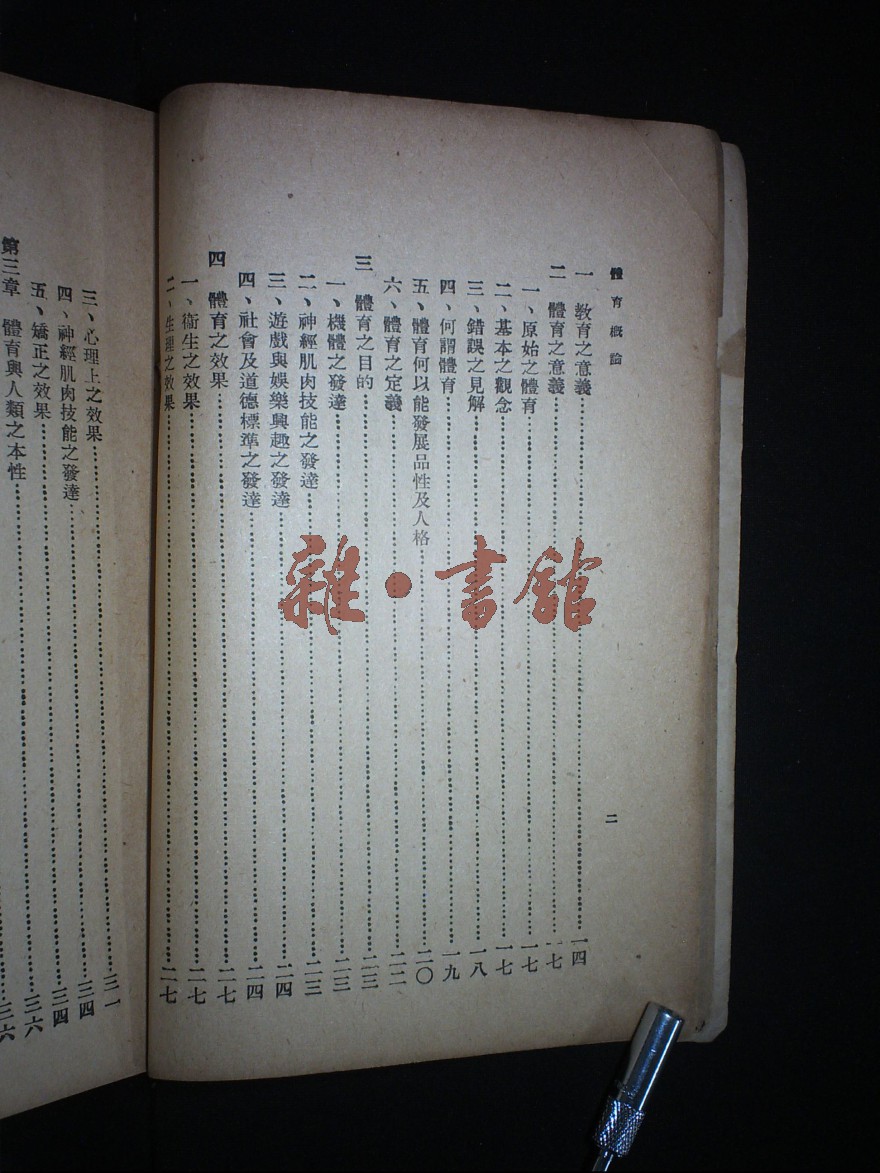 體育概論
二
一 教育之意義 一四
二 體育之意義 一七
一、原始之體育 一七
二、基本之觀念 一七
三、錯誤之見解 一八
四、何謂體育 一九
五、體育何以能發展品性及人格 二〇
六、體育之定義 二二
三 體育之目的 二三
一、機體之發達 二三
二、神經肌肉技能之發達 二三
三、遊戲與娛樂興趣之發達 二四
四、社會及道德標準之發達 二四
四 體育之效果 二七
一、衞生之效果 二七
二、生理之效果 二七
三、心理上之效果 三一
四、神經肌肉技能之發達 三四
五、矯正之效果 三四
第三章 體育與人類之本性 三六
三六
雜·書館